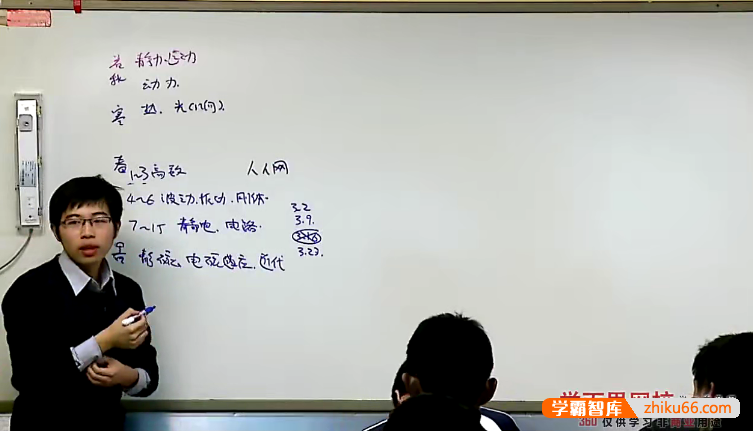 暑 静力.运动
秋 动力.
寒 热.光(几何).
春 1~3 高数 人人网
4~6 波动.振动.刚体.
3.2
7~15 静电.电路.
3.9.
暑 静磁.电磁感应.近代
3.23.
学霸智库 zhiku66.com
360 仅供学习非商业用途